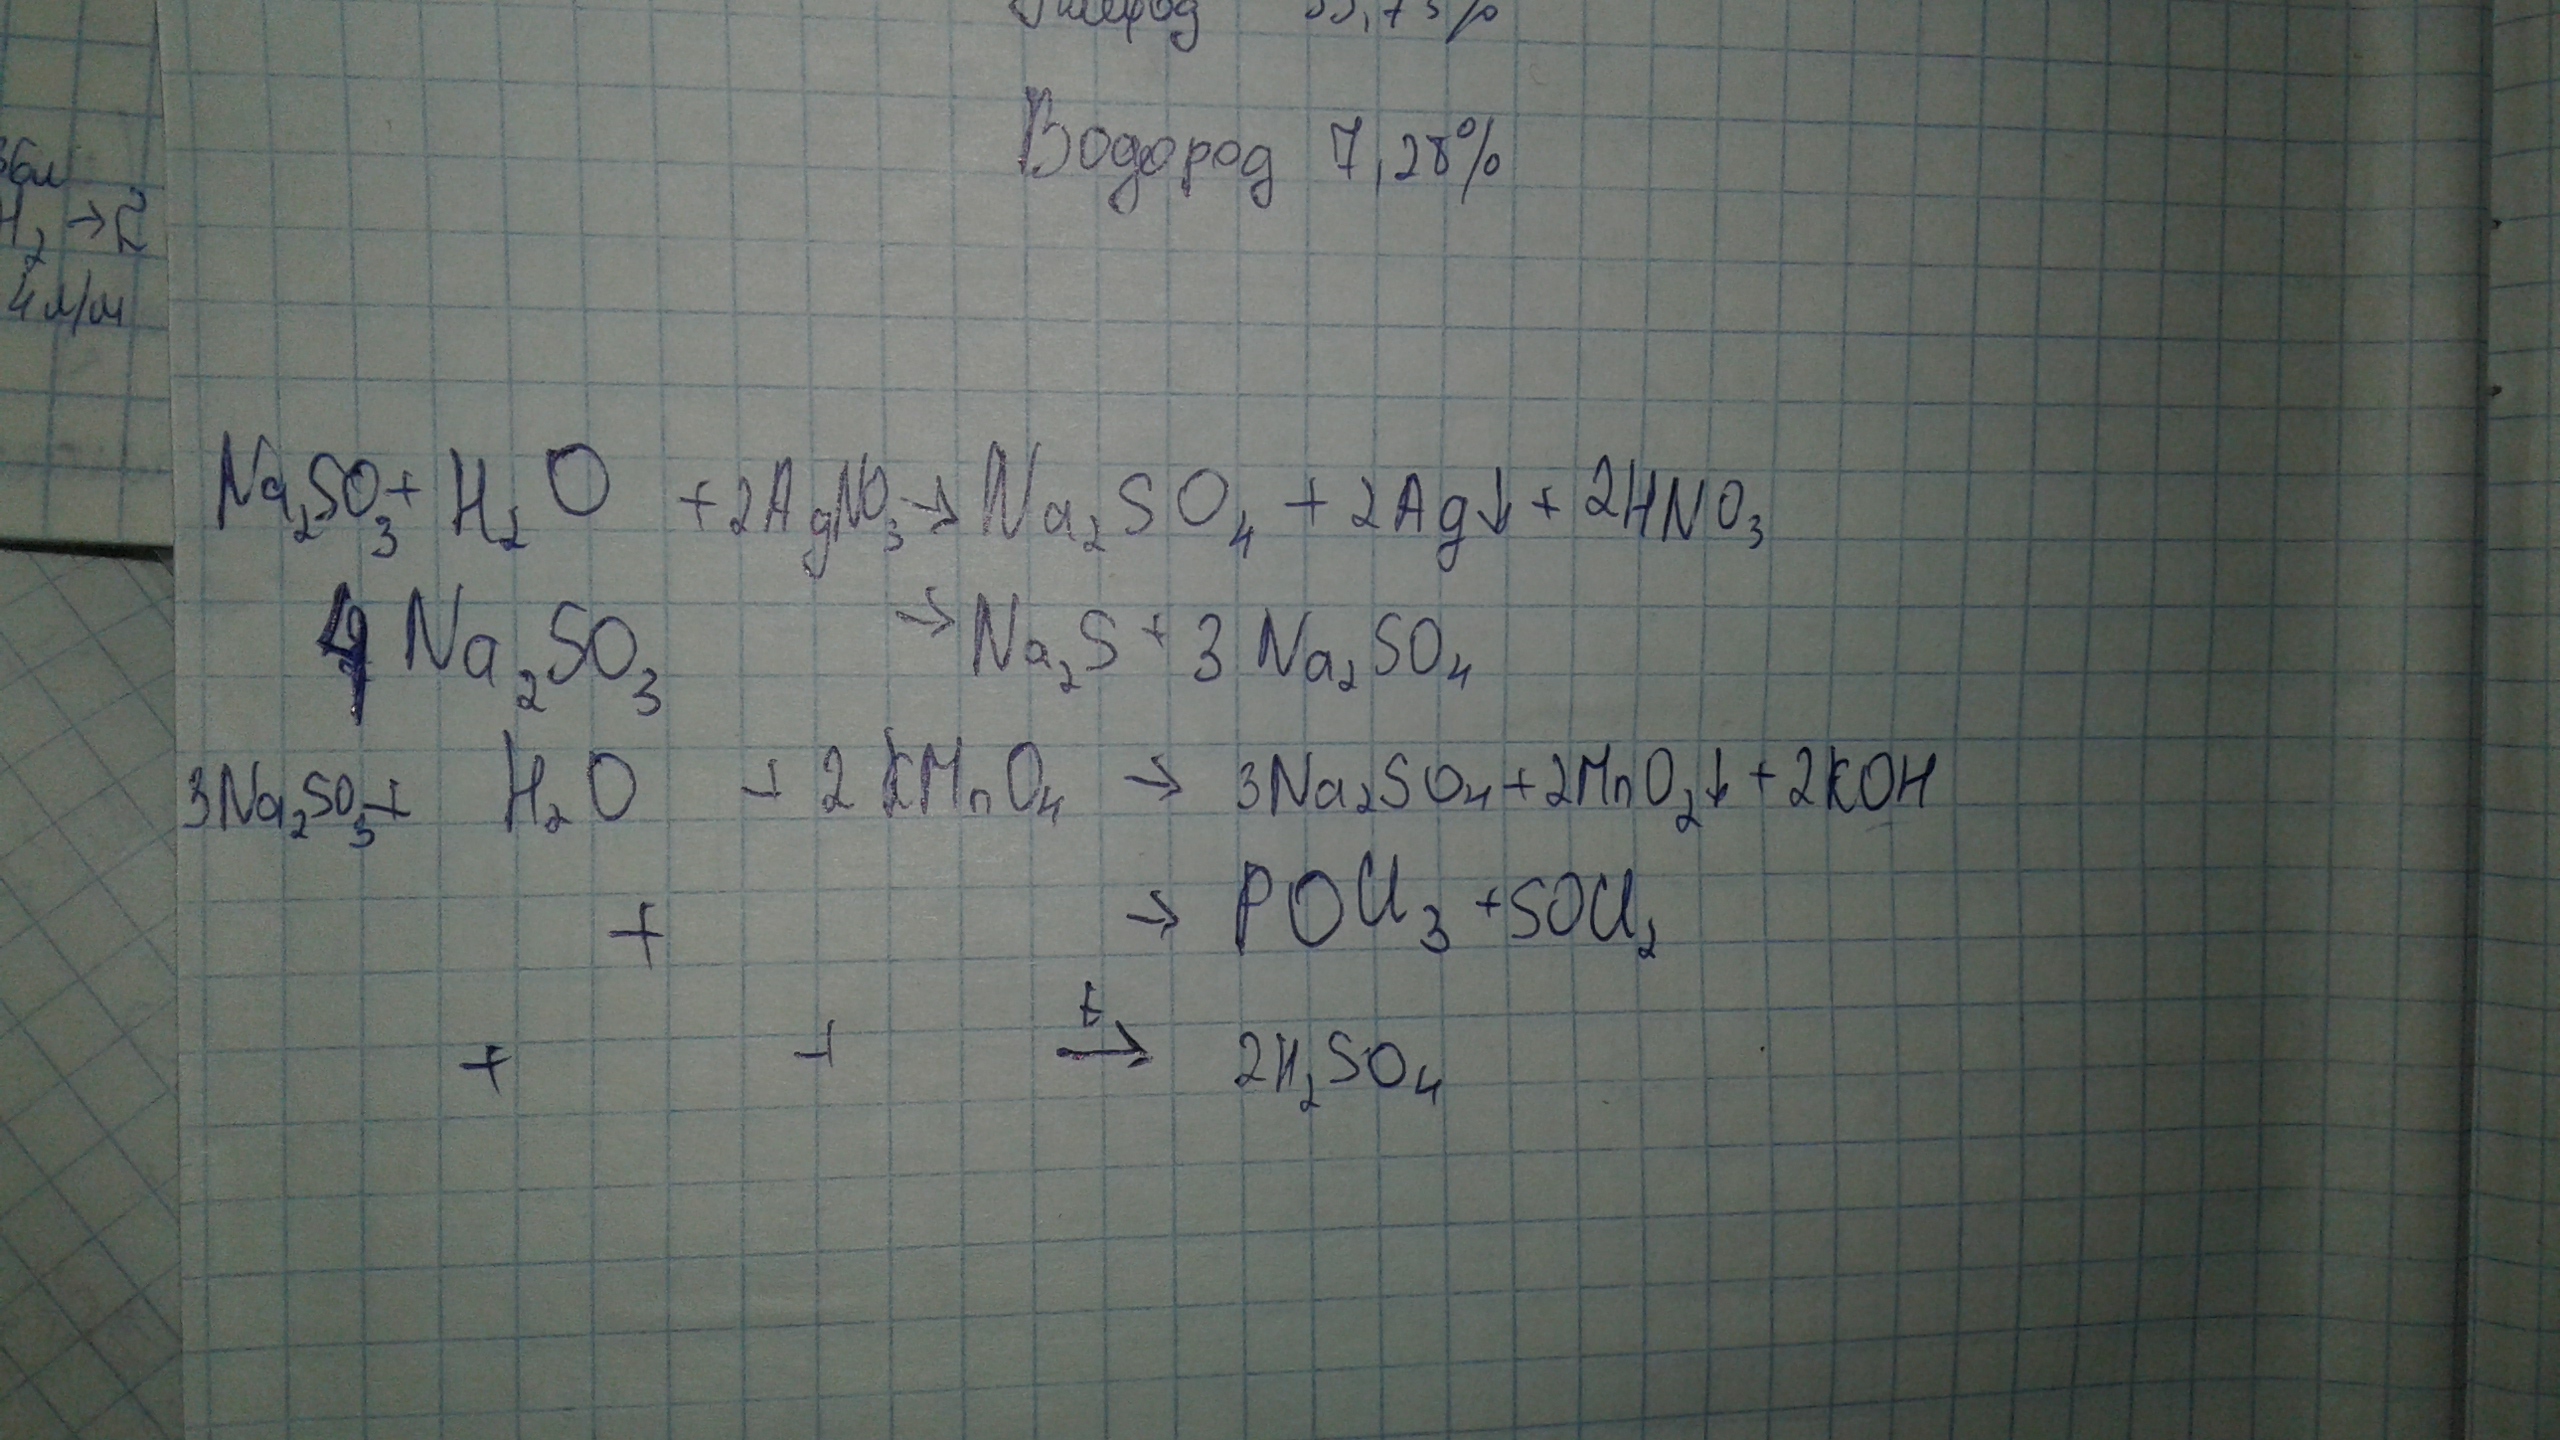 Водород 7,28%
H₂ →
4 л/м
Na₂SO₃ + H₂O + 2AgNO₃ → Na₂SO₄ + 2Ag↓ + 2HNO₃
4 Na₂SO₃ → Na₂S + 3 Na₂SO₄
3Na₂SO₃ + H₂O + 2 KMnO₄ → 3Na₂SO₄ + 2MnO₂↓ + 2KOH
+ → POCl₃ + SOCl₂
+ + t→ 2H₂SO₄